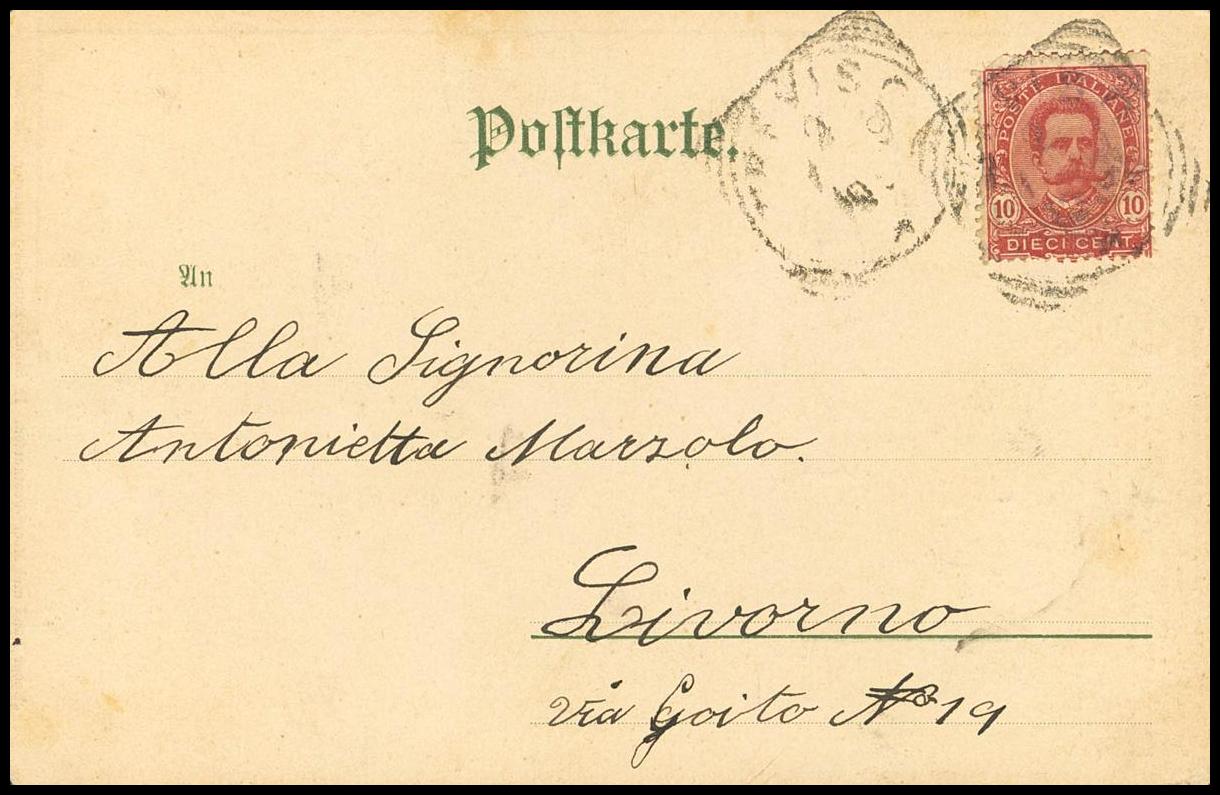 Postkarte.
POSTE ITALIANE
10 10
DIECI CENT.
An
Alla Signorina
Antonietta Marzolo.
Livorno
Via Goito No 19